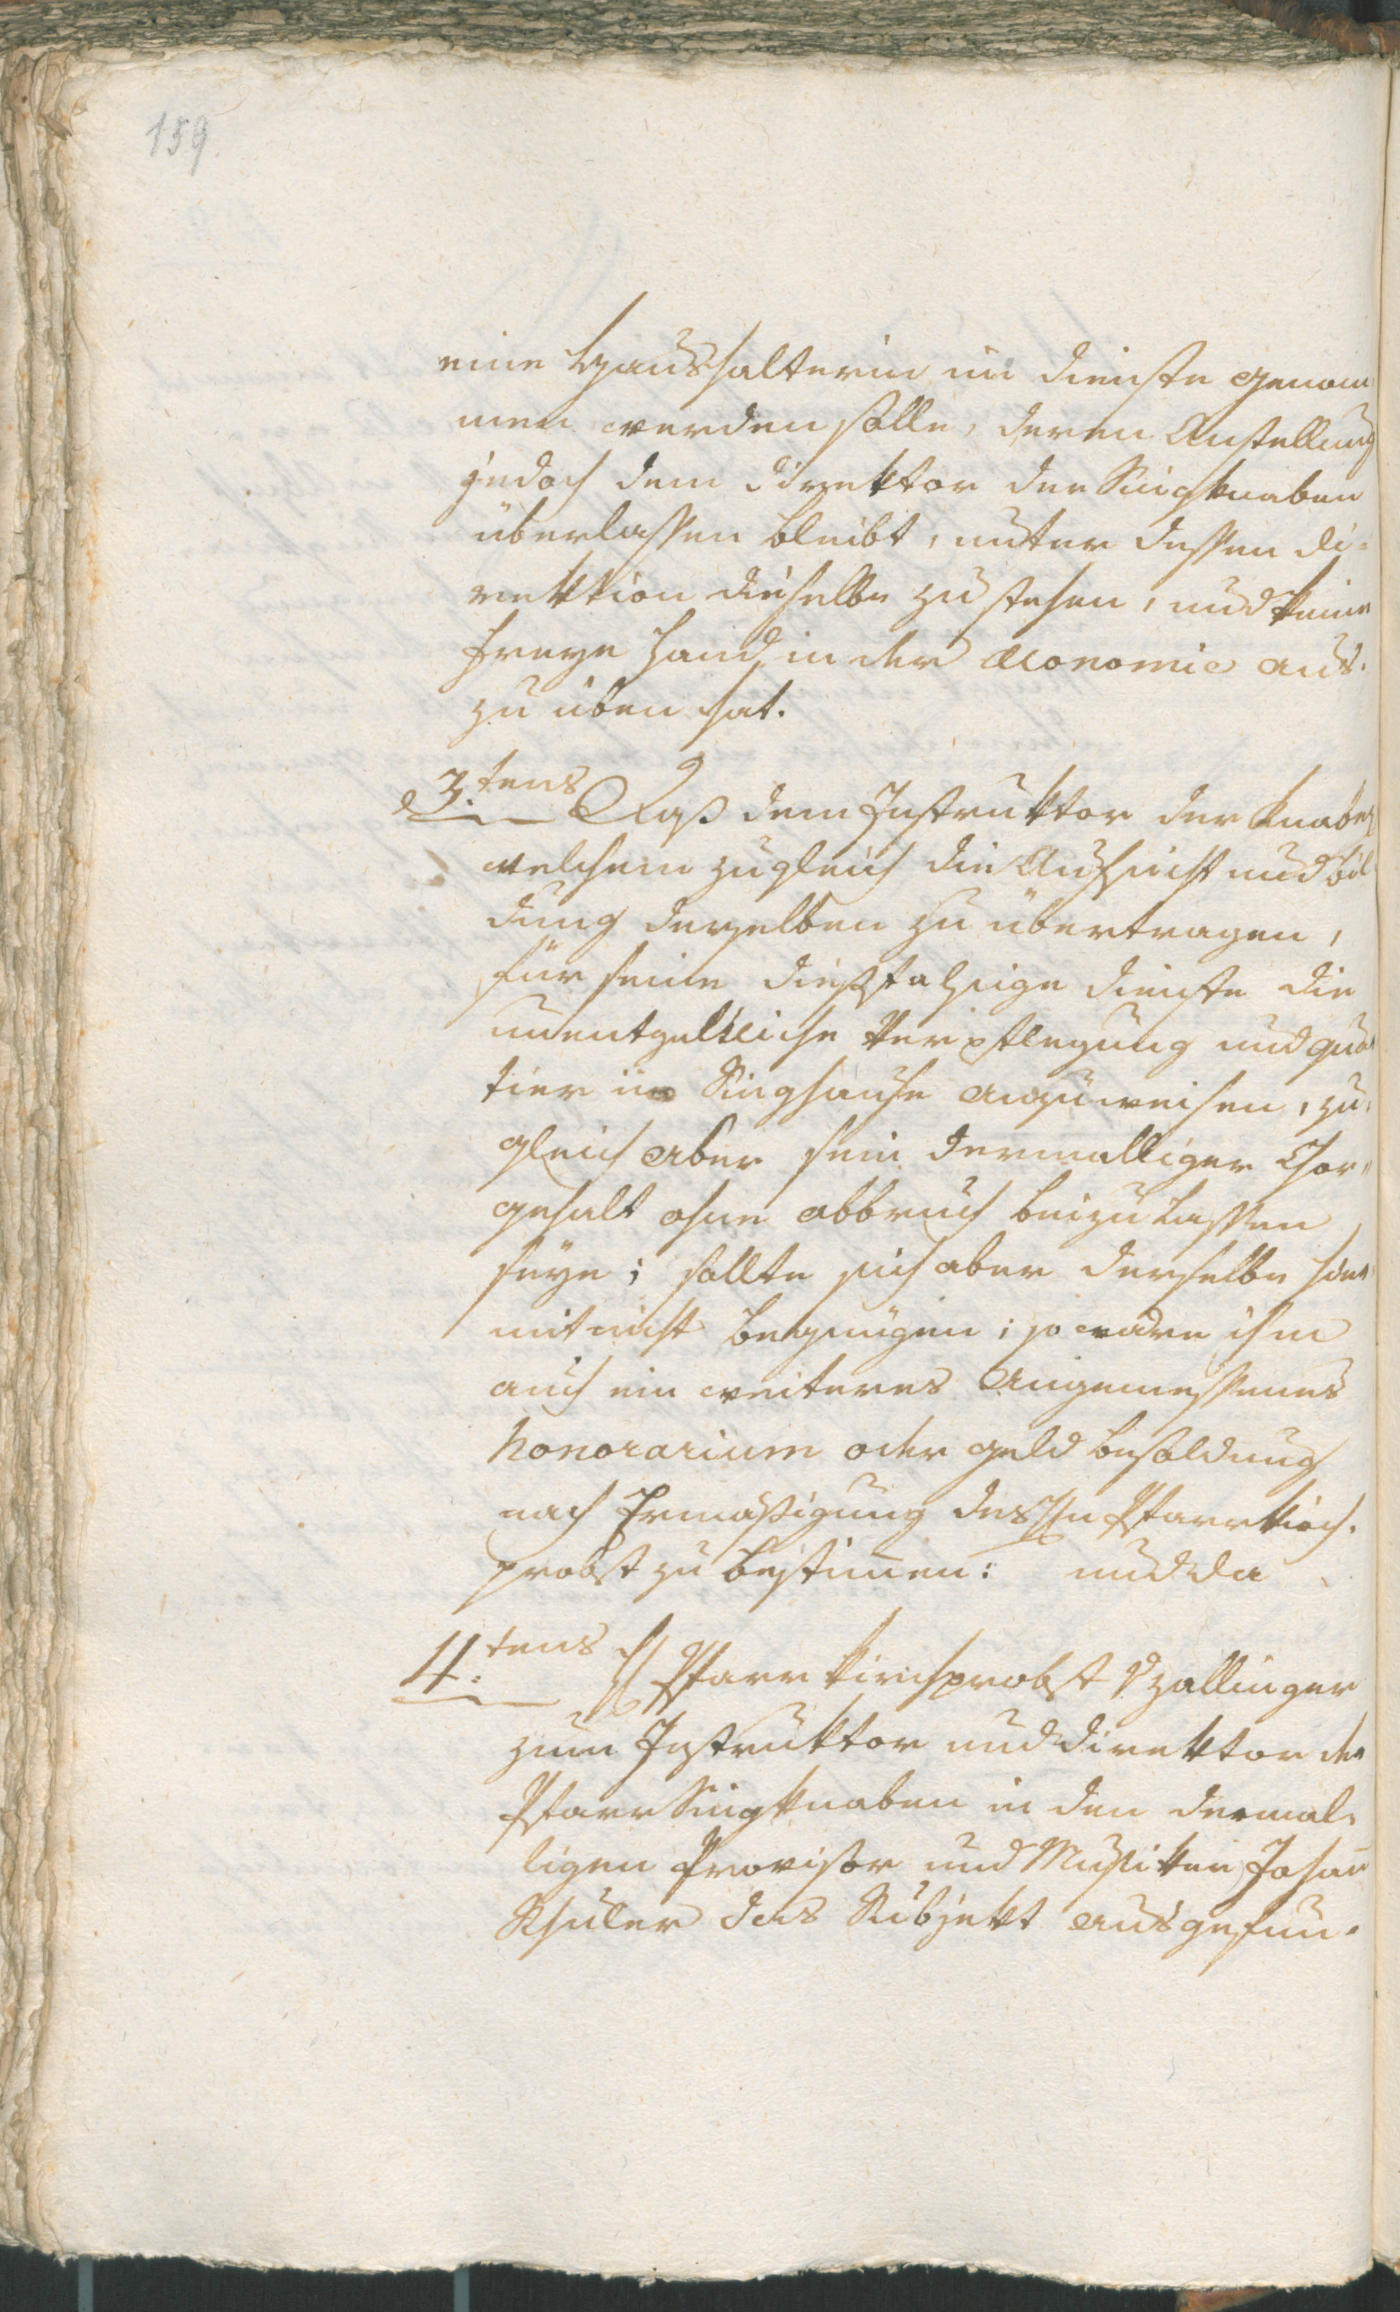 159.
eine Haushalterin in dienste genom¬
men werden solle, deren Anstellung
jedoch dem Direktor der Singknaben
überlassen bleibt, unter dessen di¬
rektion dieselbe zu stehen, und keine
freye Hand in der Œconomie aus¬
zu üben hat.
3.tens Daß dem Instruktor der Knaben
welchem zugleich die Aufsicht und bil
dung derselben zu übertragen,
für seine dießfahsige dienste die
unentgeltliche Verpflegung und quar
tier im Singhause anzuweisen, zu¬
gleich aber sein dermalliger Chor¬
gehalt ohne abbruch beizulassen
seye; sollte sich aber derselbe hier
mit nicht begnügen; so wäre ihm
auch ein weiteres Angemessenes
honorarium oder geld besoldung
nach Ermäßigung des Hn Pfarrkirch¬
probst zu bestimen: und da
4.tens H Pfarrkirchprobst v Zallinger
zum Instruktor und direktor der
Pfarr Singknaben in den dermal¬
ligen Provisor und Musiker Johan
Schuler das Subjekt ausgefun¬